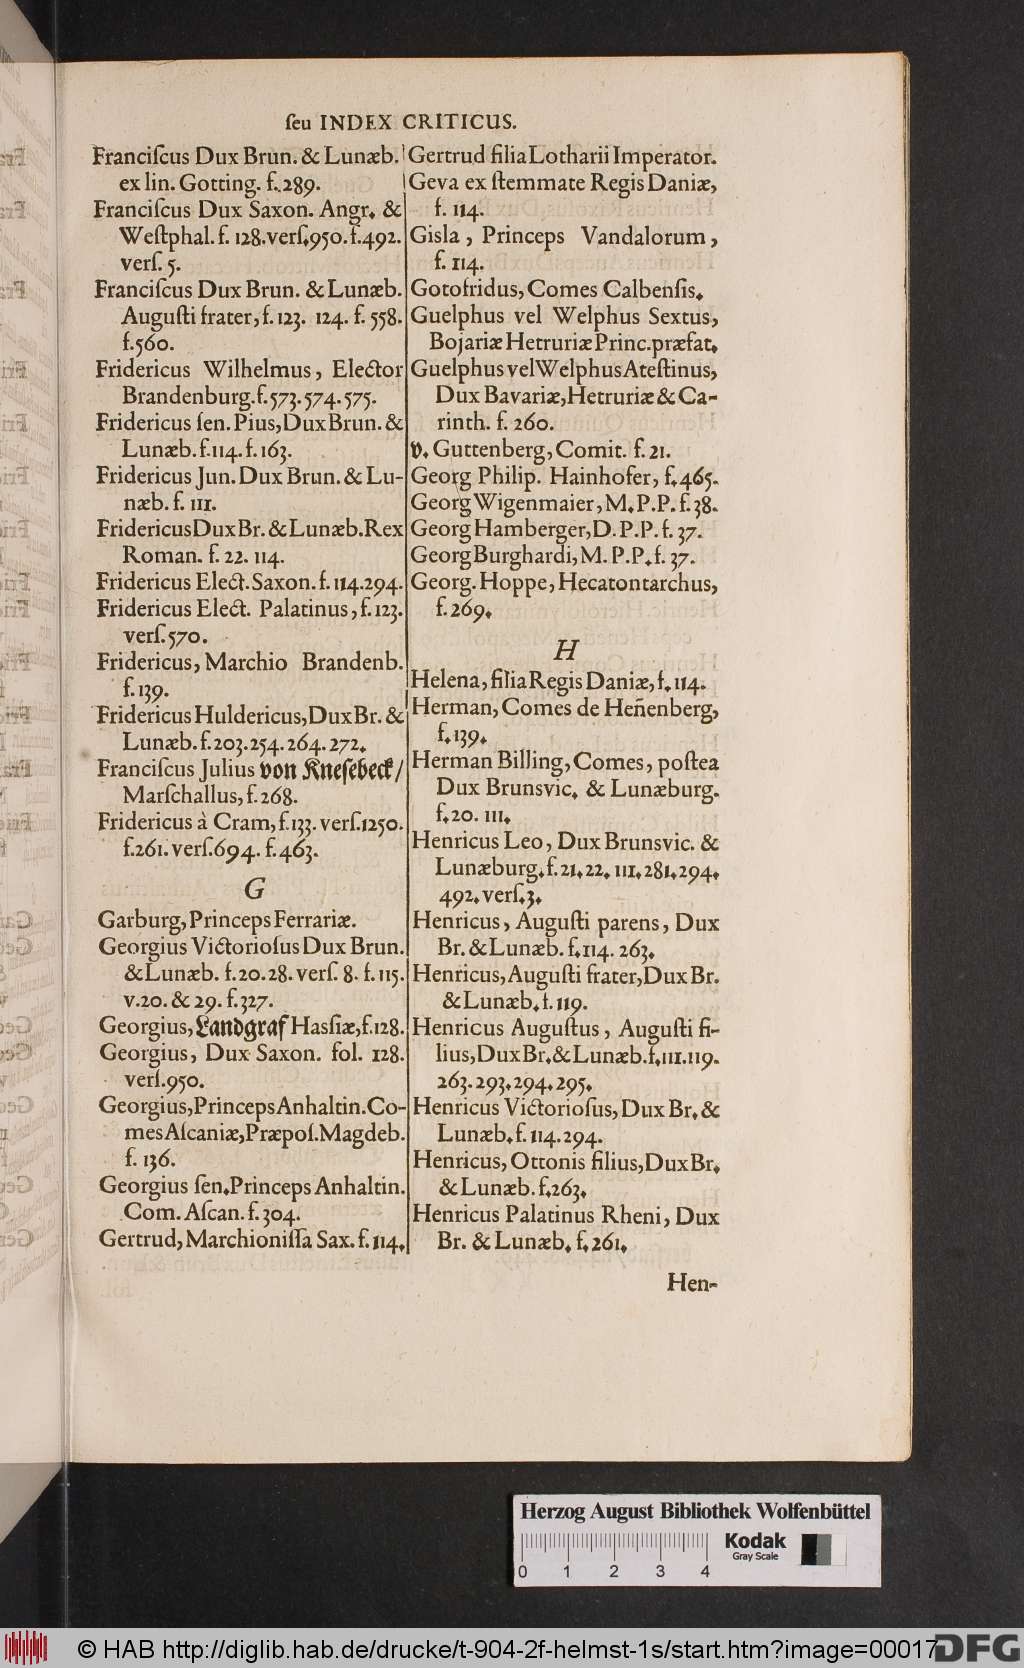 ſeu INDEX CRITICUS.
Franciſcus Dux Brun. & Lunæb.
ex lin. Gotting. f. 289.
Franciſcus Dux Saxon. Angr. &
Weſtphal. f. 128. verſ. 950. f. 492.
verſ. 5.
Franciſcus Dux Brun. & Lunæb.
Auguſti frater, f. 123. 124. f. 558.
f. 560.
Fridericus Wilhelmus, Elector
Brandenburg. f. 573. 574. 575.
Fridericus ſen. Pius, Dux Brun. &
Lunæb. f. 114. f. 163.
Fridericus Jun. Dux Brun. & Lu-
næb. f. 111.
Fridericus Dux Br. & Lunæb. Rex
Roman. f. 22. 114.
Fridericus Elect. Saxon. f. 114. 294.
Fridericus Elect. Palatinus, f. 123.
verſ. 570.
Fridericus, Marchio Brandenb.
f. 139.
Fridericus Huldericus, Dux Br. &
Lunæb. f. 203. 254. 264. 272.
Franciſcus Julius von Kneſebeck/
Marſchallus, f. 268.
Fridericus à Cram, f. 133. verſ. 1250.
f. 261. verſ. 694. f. 463.
G
Garburg, Princeps Ferrariæ.
Georgius Victorioſus Dux Brun.
& Lunæb. f. 20. 28. verſ. 8. f. 115.
v. 20. & 29. f. 327.
Georgius, Landgraf Haſſiæ, f. 128.
Georgius, Dux Saxon. fol. 128.
verſ. 950.
Georgius, Princeps Anhaltin. Co-
mes Aſcaniæ, Præpoſ. Magdeb.
f. 136.
Georgius ſen. Princeps Anhaltin.
Com. Aſcan. f. 304.
Gertrud, Marchioniſſa Sax. f. 114.
Gertrud filia Lotharii Imperator.
Geva ex ſtemmate Regis Daniæ,
f. 114.
Gisla, Princeps Vandalorum,
f. 114.
Gotofridus, Comes Calbenſis.
Guelphus vel Welphus Sextus,
Bojariæ Hetruriæ Princ. præfat.
Guelphus vel Welphus Ateſtinus,
Dux Bavariæ, Hetruriæ & Ca-
rinth. f. 260.
v. Guttenberg, Comit. f. 21.
Georg Philip. Hainhofer, f. 465.
Georg Wigenmaier, M. P. P. f. 38.
Georg Hamberger, D. P. P. f. 37.
Georg Burghardi, M. P. P. f. 37.
Georg. Hoppe, Hecatontarchus,
f. 269.
H
Helena, filia Regis Daniæ, f. 114.
Herman, Comes de Heñenberg,
f. 139.
Herman Billing, Comes, poſtea
Dux Brunsvic. & Lunæburg.
f. 20. 111.
Henricus Leo, Dux Brunsvic. &
Lunæburg. f. 21. 22. 111. 281. 294.
492. verſ. 3.
Henricus, Auguſti parens, Dux
Br. & Lunæb. f. 114. 263.
Henricus, Auguſti frater, Dux Br.
& Lunæb. f. 119.
Henricus Auguſtus, Auguſti fi-
lius, Dux Br. & Lunæb. f. 111. 119.
263. 293. 294. 295.
Henricus Victorioſus, Dux Br. &
Lunæb. f. 114. 294.
Henricus, Ottonis filius, Dux Br.
& Lunæb. f. 263.
Henricus Palatinus Rheni, Dux
Br. & Lunæb. f. 261.
Hen-
Herzog August Bibliothek Wolfenbüttel
Kodak
Gray Scale
0 1 2 3 4
© HAB http://diglib.hab.de/drucke/t-904-2f-helmst-1s/start.htm?image=00017
DFG